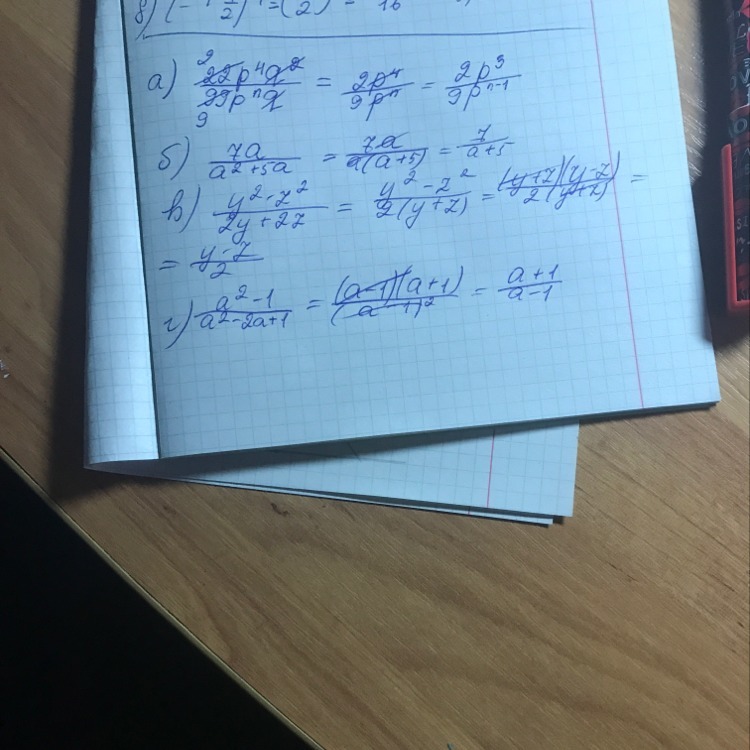 а) 22p⁴q²/99pⁿq = 2p⁴/9pⁿ = 2p³/9pⁿ⁻¹
б) 7a/a²+5a = 7a/a(a+5) = 7/a+5
в) y²-z²/2y+2z = y²-z²/2(y+z) = (y+z)(y-z)/2(y+z) =
= y-z/2
г) a²-1/a²-2a+1 = (a-1)(a+1)/(a-1)² = a+1/a-1